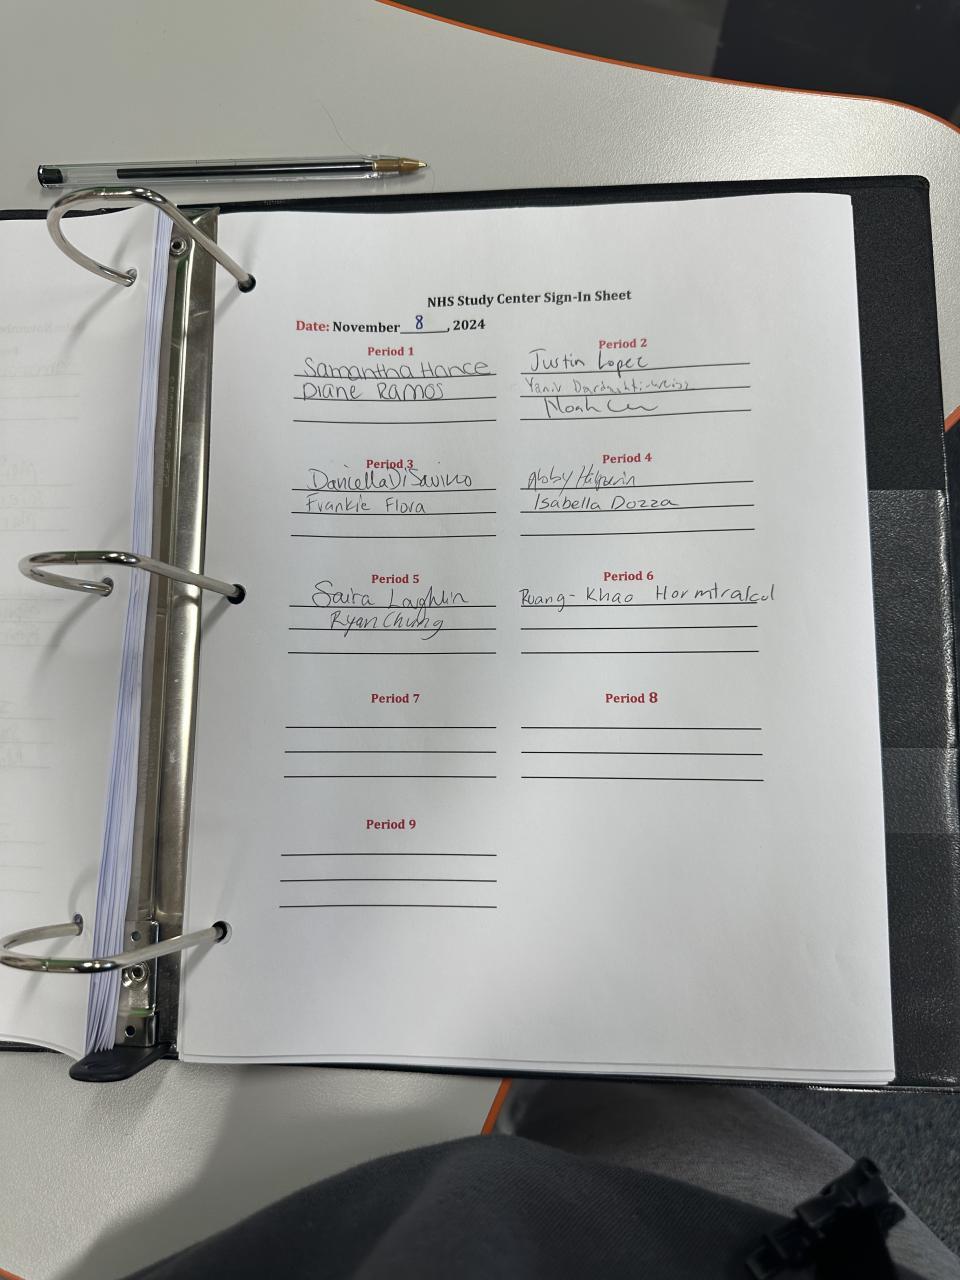 NHS Study Center Sign-In Sheet
Date: November 8, 2024
Period 1
Samantha Hance
Diane Ramos
Period 2
Justin Lopez
Yaniv Dardashti-Weiss
Noah
Period 3
Daniella DiSavino
Frankie Flora
Period 4
Abby Halperin
Isabella Dozza
Period 5
Saira Laghlin
Ryan Chung
Period 6
Ruang-Khao Hormtralcul
Period 7
Period 8
Period 9